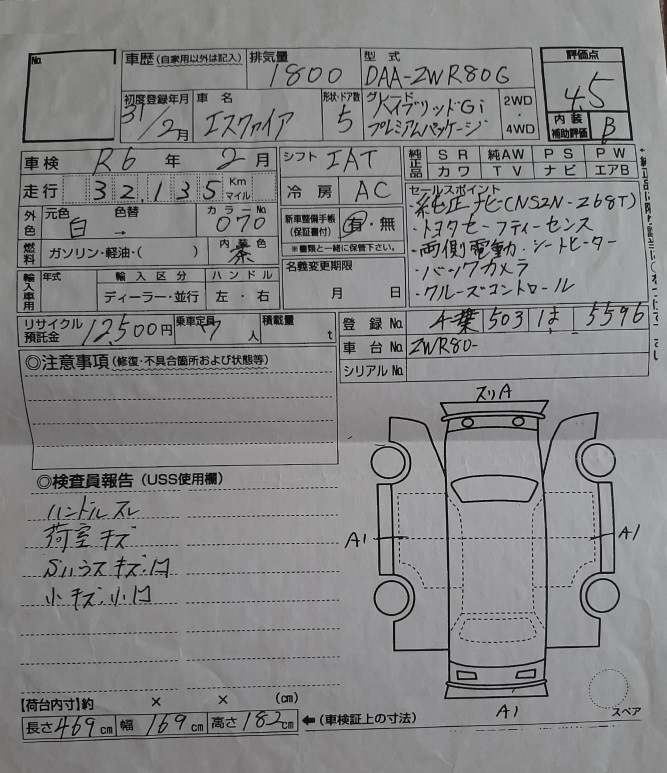 No.
車歴 (自家用以外は記入)
排気量 1800
型式 DAA-ZWR80G
評価点 4.5
内装補助評価 B
初度登録年月 31/2月
車名 エスクァイア
形状・ドア数 5
グレード ハイブリッドGi プレミアムパッケージ
2WD・4WD
車検 R6年 2月
シフト IAT
純正品 SR 純AW PS PW
カワ TV ナビ エアB
走行 32,135 Km マイル
冷房 AC
セールスポイント
・純正ナビ(NSZN-Z68T)
・トヨタセーフティーセンス
・両側電動・シートヒーター
・バックカメラ
・クルーズコントロール
外色 元色 白 色替 → カラーNo. 070
新車整備手帳 (保証書付) 有・無
※書類と一緒に保管下さい。
燃料 ガソリン・軽油・( )
内装色 茶
名義変更期限 月 日
輸入車用 年式 輸入区分 ハンドル
ディーラー・並行 左・右
リサイクル預託金 12,500円
乗車定員 7人
積載量 t
登録No. 503 は 5596
車台No. ZWR80-
シリアルNo.
◎注意事項 (修復・不具合箇所および状態等)
◎検査員報告 (USS使用欄)
ハンドルスレ
荷室キズ
キズ・凹
小キズ・小凹
スリA
A1
A1
A1
スペア
【荷台内寸】約 × × (cm)
長さ469cm 幅169cm 高さ182cm ←(車検証上の寸法)